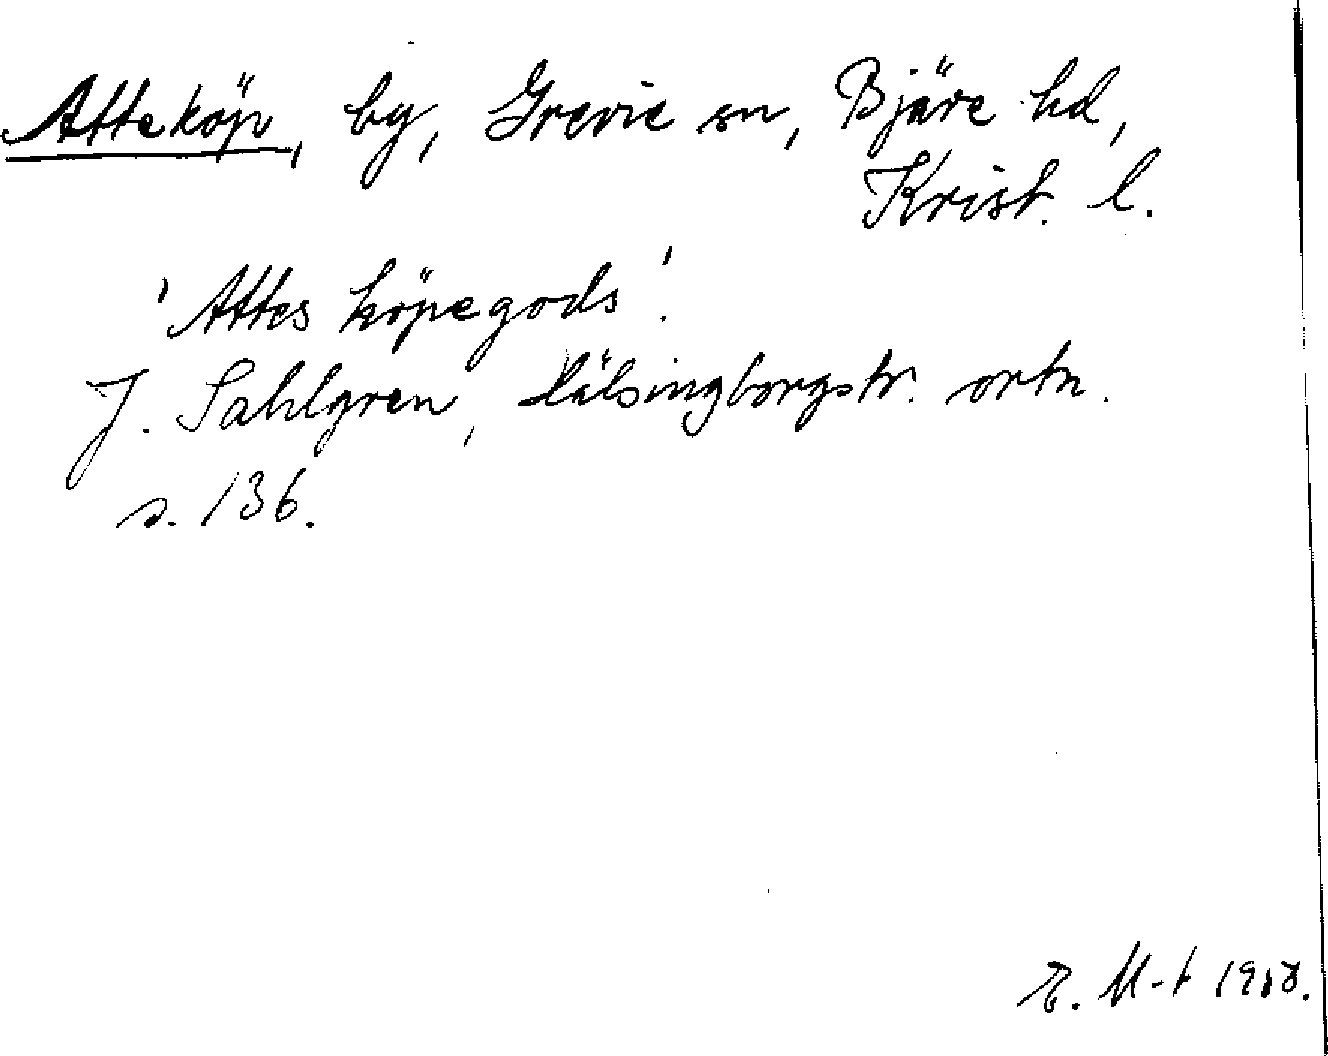 Atteköp, by, Grevie sn, Bjäre hd,
Krist. l.
'Attes köpegods'.
J. Sahlgren, Hälsingborgstr. ortn.
s. 136.
M-t